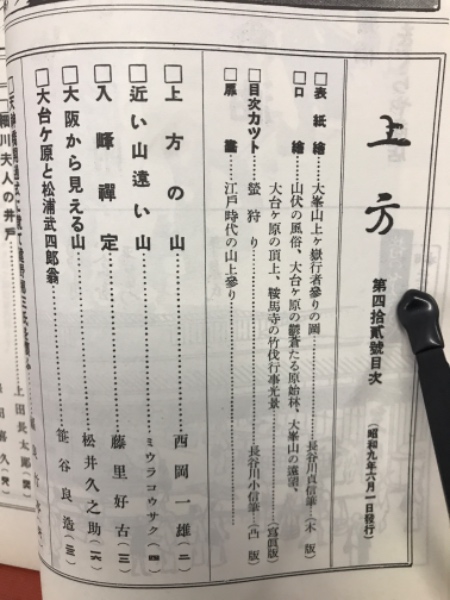 上方 第四拾貳號目次 (昭和九年六月一日發行)
□表紙繪 大峯山上ヶ嶽行者參りの圖 長谷川貞信筆 (木版)
□口繪 山伏の風俗、大台ヶ原の鬱蒼たる原始林、大峯山の遠望、
大台ヶ原の頂上、鞍馬寺の竹伐行事光景 (寫眞版)
□目次カツト 螢狩り 長谷川小信筆 (凸版)
□扉繪 江戸時代の山上參り
□上方の山 西岡一雄 (二)
□近い山遠い山 ミウラコウサク (四)
□入峰禪定 藤里好古 (三)
□大阪から見える山 松井久之助 (六)
□大台ケ原と松浦武四郎翁 笹谷良造 (三)
上田長太郎
細川夫人の井戸